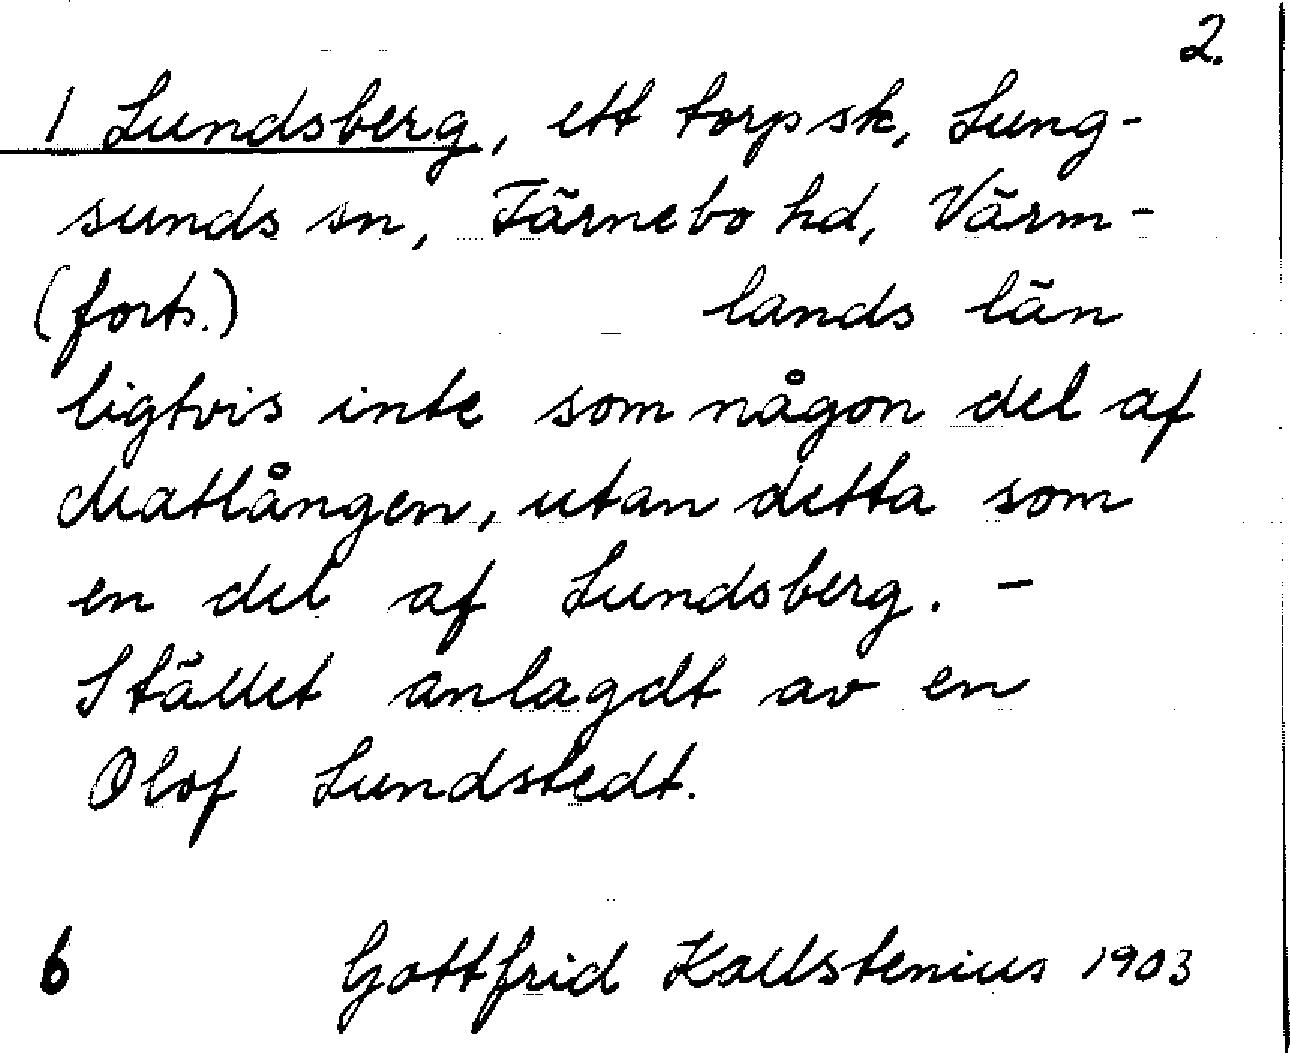 2.
1 Lundsberg, ett torpsk, Lung-
sunds sn, Färnebo hd, Värm-
(forts.) lands län
ligtvis inte som någon del af
Matlången, utan detta som
en del af Lundsberg. –
Stället anlagdt av en
Olof Lundstedt.
6 Gottfrid Kallstenius 1903